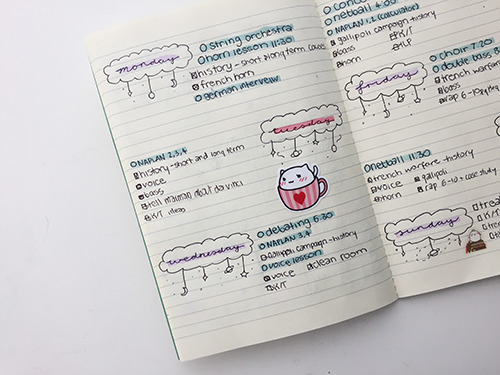 monday
string orchestra
horn lesson 11:30
history - short + long term cause
french horn
german interview
tuesday
NAPLAN 2,3,4
history - short and long term
voice
bass
tell maiman about da vinci
KIT ideas
wednesday
debating 6:30
NAPLAN 3,4
gallipoli campaign - history
voice lesson
voice
clean room
KIT
netball 4:00
NAPLAN 1,2 (calculator)
gallipoli campaign - history
bass
KIT
horn
friday
choir 7:20
double bass
trench warfare
bass
rap 6-10
netball 11:30
trench warfare - history
voice
gallipoli
horn
rap 6-10 + case study
sunday